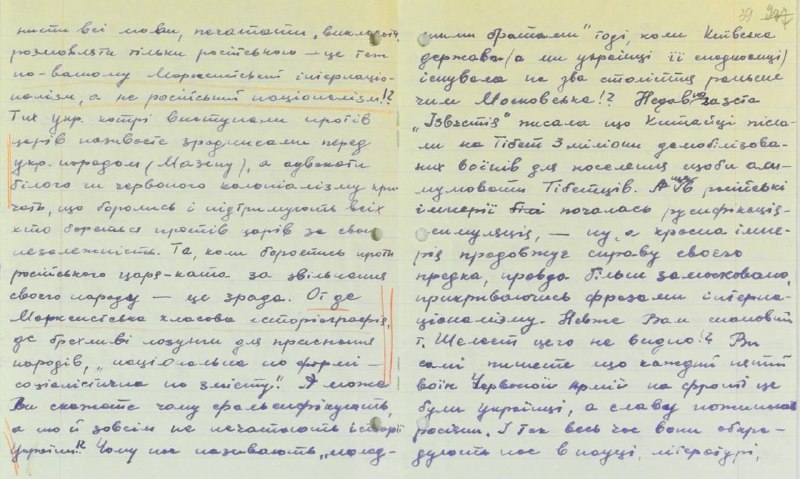 нисти всі мови, печатати, викладати,
розмовляти тільки російською — це теж
по-вашому Марксистський інтернаціо-
налізм, а не російський націоналізм!?
Тих укр. котрі виступали проти
царів називаєте зрадниками перед
укр. народом (Мазепу), а адвокати
білого чи червоного колоніалізму кри-
чать, що боролись і підтримують всіх
хто бореться проти царів за свою
незалежність. Та, коли боротись проти
російського царя-ката за звільнення
свого народу — це зрада. От де
Марксистська класова історіографія,
де брехливі лозунги для приспання
народів, „національна по формі —
соціалістична по змісту". А може
Ви скажете чому фальсифікують,
а то й зовсім не печатають історії
України? Чому нас називають „молод-
39
шими братами" тоді, коли Київська
держава (а ми українці її спадкоємці)
існувала на два століття раньше
чим Московська!? Недавно газета
„Ізвєстія" писала що Китайці післа-
ли на Тібет 3 міліони демобілізова-
них воїнів для поселення щоби аси-
мілювати Тібетців. А ще в російські
імперії почалась русифікація-
симуляція, — ну, а красна імпе-
рія продовжує справу свого
предка, правда більш замасковано,
прикриваючись фразами інтерна-
ціоналізму. Невже Вам шановний
т. Шелест цего не видно!? Ви
самі пишете що кождий пятий
воїн Червоной армій на фронті це
були українці, а славу пожинают
росіяни. І так весь час вони обкра-
дують нас в науці, літературі,